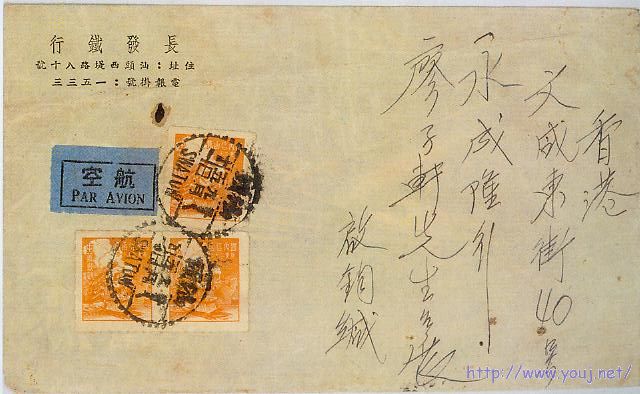 長發鐵行
住址：汕頭西堤路八十號
電報掛號：一五三三
航空
PAR AVION
SWATOW
SWATOW
香港
文咸東街40号
永成隆行
廖子軒先生台
啟鈞緘
http://www.youj.net/